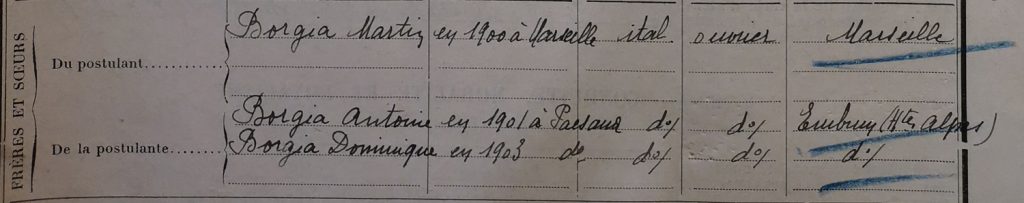 FRÈRES ET SŒURS
Borgia Martin en 1900 à Marseille ital ouvrier Marseille
Du postulant
Borgia Antoine en 1901 à Paesana d°/ d°/ Embrun (Htes Alpes)
De la postulante
Borgia Dominique en 1903 d° d°/ d°/ d°/